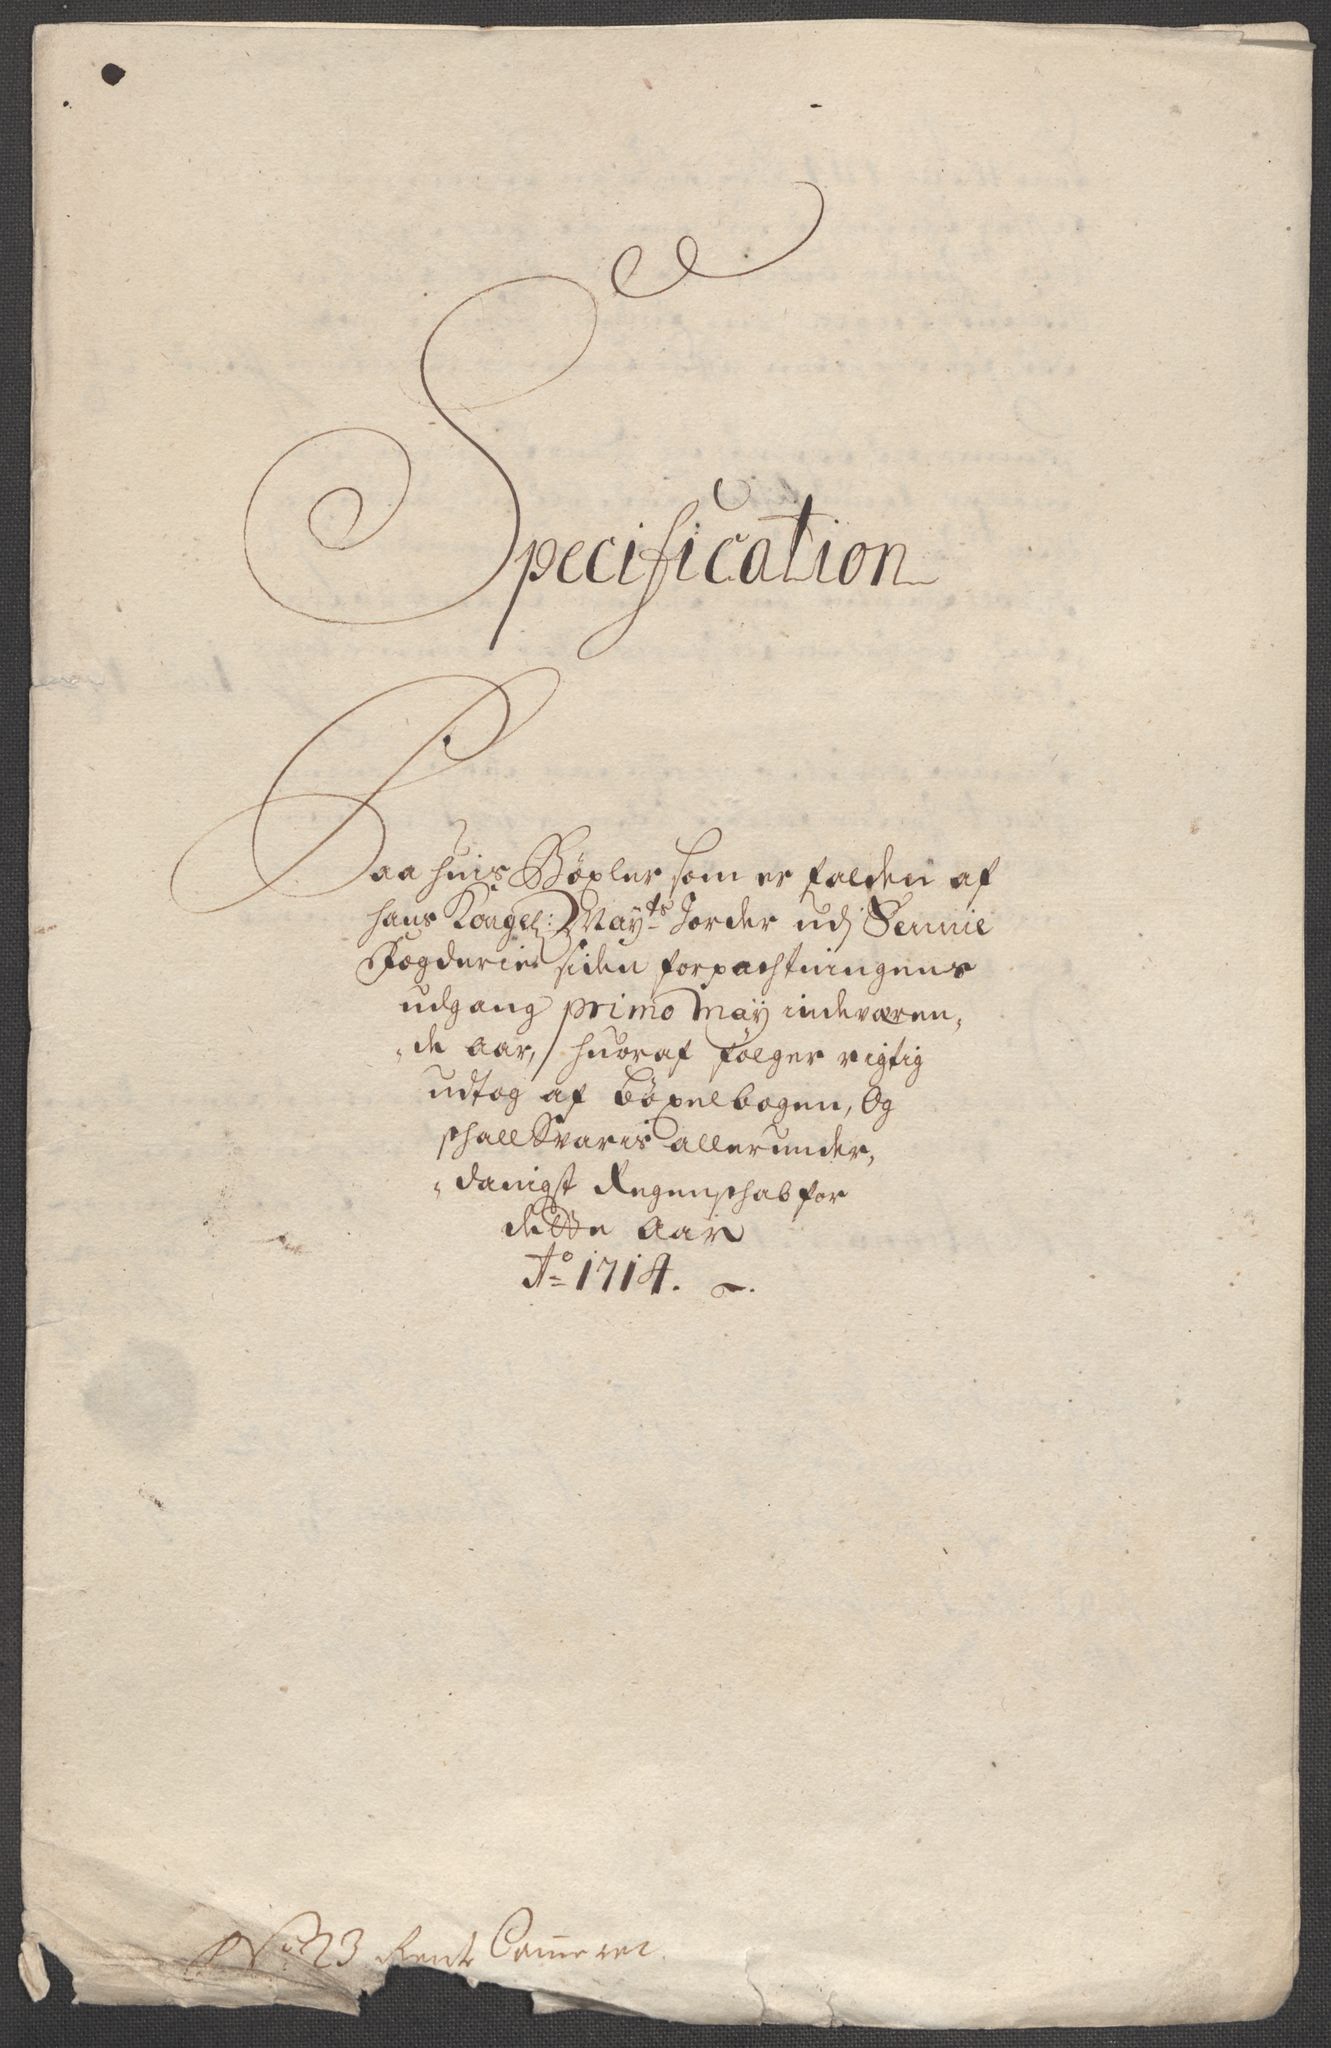 Specification
Paa huis Böxler som er falden af
hans Kongel: May.ts Jorder udj Sennie
Fogderie siden forpachtningens
udgang primo May indeværen,
,de Aar, huoraf følger rigtig
udtog af böxelbogen, Og
schall Svaris allerunder,
,danigst Regenschab for
dette Aar
Ao 1714.
No 23 Rente Cammeret.